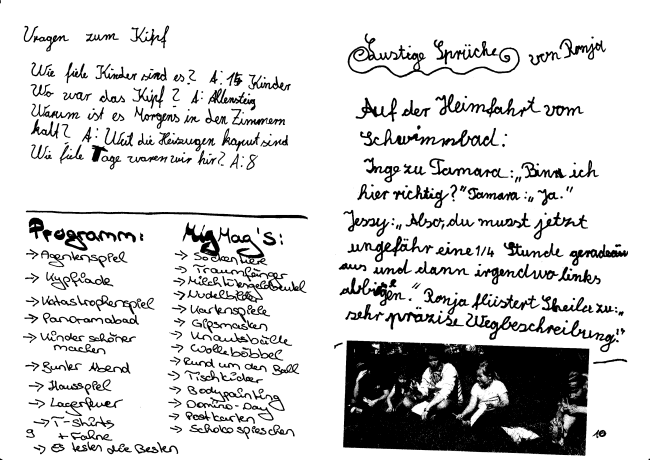 Vragen zum Kipf
Wie fiele Kinder sind es? A: 15 Kinder
Wo war das Kipf? A: Allensteig
Warum ist es Morgens in den Zimmern
kalt? A: Weil die Heizugen kaputt sind
Wie fiele Tage waren wir hir? A: 8
Programm:
→ Agentenspiel
→ Kypfiade
→ Katastrophenspiel
→ Panoramabad
→ Kinder schöner
machen
→ Bunter Abend
→ Hausspiel
→ Lagerfeuer
→ T-Shirts
+ Fahne
→ testen die Besten
9
MigMag's:
→ Sockentiere
→ Traumfänger
→ Milchtütengeldbeutel
→ Nudelbilder
→ Kartenspiele
→ Gipsmasken
→ Knautsbälle
→ Wollebobbel
→ Rund um den Ball
→ Tischkicker
→ Bodypainting
→ Domino-Day
→ Postkarten
→ Schokospieschen
Lustige Sprüche von Ronja
Auf der Heimfahrt vom
Schwimmbad:
Inge zu Tamara: „Binn ich
hier richtig?" Tamara: „Ja."
Jessy: „Also, du musst jetzt
ungefähr eine 1/4 Stunde geradeau
aus und dann irgendwo links
abbiegen." Ronja flüstert Sheila zu: „
sehr präzise Wegbeschreibung!"
10